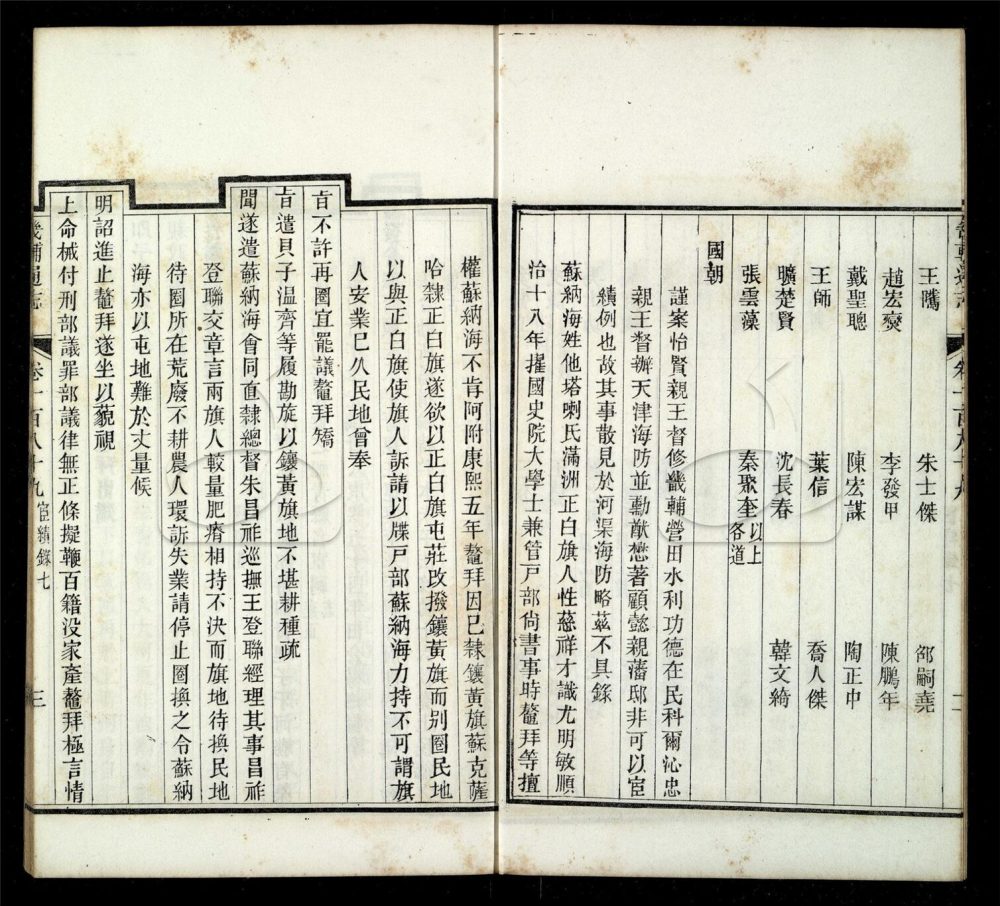 王隲　朱士傑　邵嗣堯
趙宏燮　李發甲　陳鵬年
戴聖聰　陳宏謀　陶正中
王師　葉信　喬人傑
曠楚賢　沈長春　韓文綺
張雲藻　秦聚奎以上各道
國朝
謹案怡賢親王督修畿輔營田水利功德在民科爾沁忠
親王督辦天津海防並勳猷懋著顧懿親藩邸非可以宦
績例也故其事散見於河渠海防略茲不具錄
蘇納海姓他塔喇氏滿洲正白旗人性慈祥才識尤明敏順
治十八年擢國史院大學士兼管戸部尚書事時鼇拜等擅
權蘇納海不肯阿附康熙五年鼇拜因已隸鑲黃旗蘇克薩
哈隸正白旗遂欲以正白旗屯莊改撥鑲黃旗而别圈民地
以與正白旗使旗人訴請以牒戸部蘇納海力持不可謂旗
人安業已久民地曾奉
旨不許再圈宜罷議鼇拜矯
旨遣貝子温齊等履勘旋以鑲黃旗地不堪耕種疏
聞遂遣蘇納海會同直隸總督朱昌祚巡撫王登聯經理其事昌祚
登聯交章言兩旗人較量肥瘠相持不決而旗地待換民地
待圈所在荒廢不耕農人環訴失業請停止圈換之令蘇納
海亦以屯地難於丈量候
明詔進止鼇拜遂坐以藐視
上命械付刑部議罪部議律無正條擬鞭百籍没家產鼇拜極言情
畿輔通志　卷一百八十九　宦績錄七　三